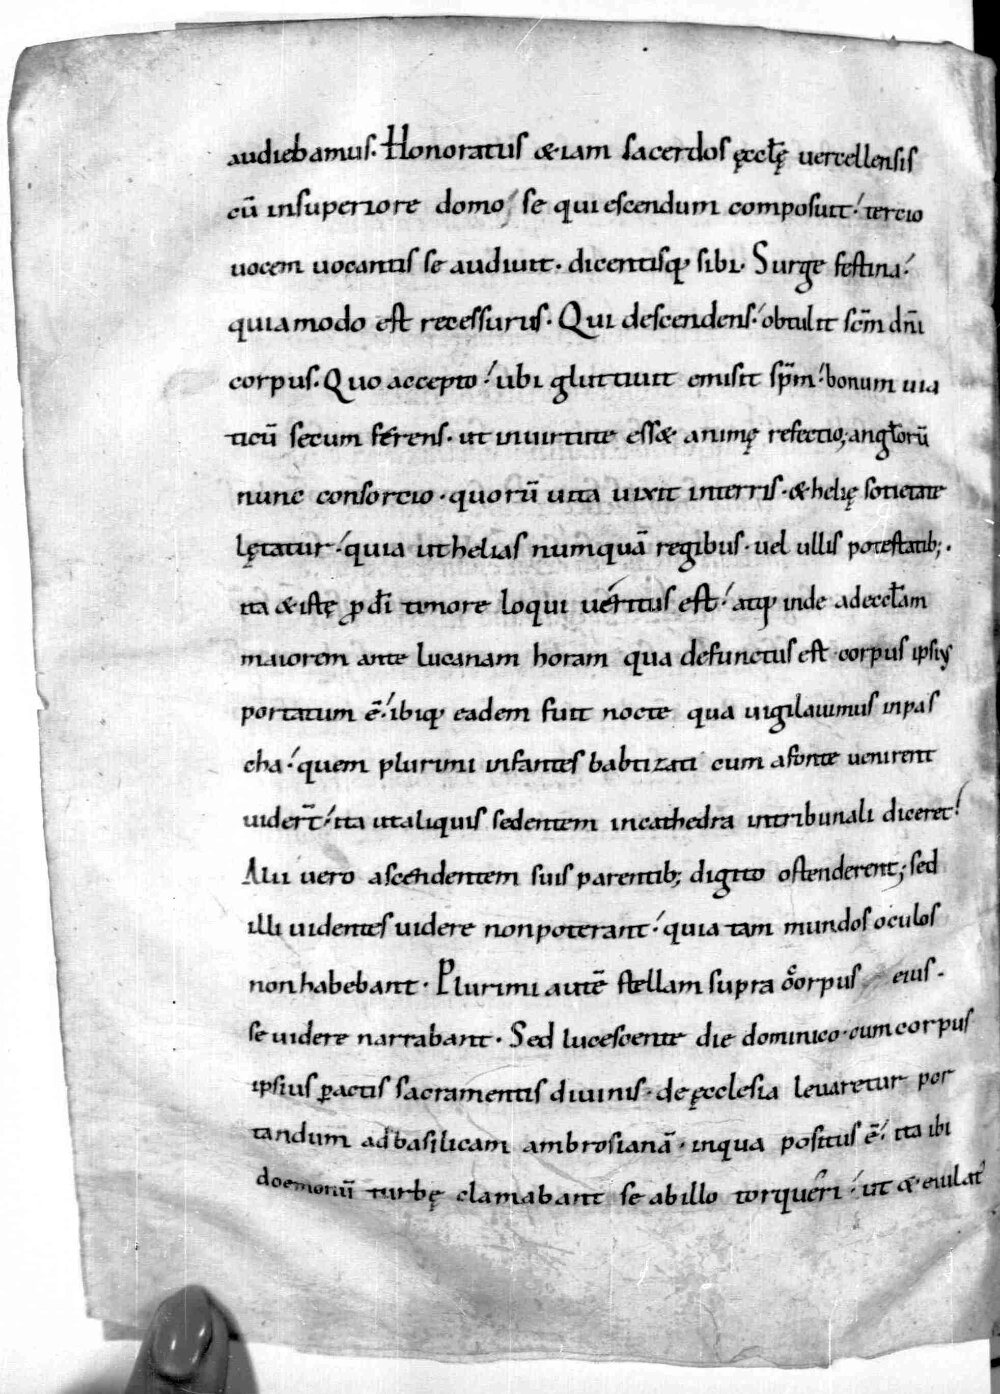 audiebamus. Honoratus &iam sacerdos ęccłę uercellensis
cū insuperiore domo se qui escendum composuit. tercio
uocem uocantis se audiuit. dicentisq; sibi. Surge festina.
quiamodo est recessurus. Qui descendens. obtulit scm̄ dnī
corpus. Quo accepto. ubi gluttiuit emisit sp̄m. bonum uia
ticū secum ferens. ut inuirtute ess& animę refectio; angłorū
nunc consorcio. quorū uita uixit interris. &helię societate
lętatur. quia uthelias numquā regibus. uel ullis potestatib;.
ita &istę ꝓ dī timore loqui ueritus est. atq; inde adeccłam
maiorem ante lucanam horam qua defunctus est. corpus ipsius
portatum ē. ibiq; eadem fuit nocte qua uigilauimus inpas
cha. quem plurimi infantes babtizati cum afonte uenirent
uider̄t. ita utaliquis sedentem incathedra intribunali diceret.
Alii uero ascendentem suis parentib; digito ostenderent; sed
illi uidentes uidere nonpoterant. quia tam mundos oculos
nonhabebant. Plurimi autē stellam supra corpus eius.
se uidere narrabant. Sed lucescente die dominico. cumcorpus
ipsius ꝑactis sacramentis diuinis. de ęcclesia leuaretur por
tandum adbasilicam ambrosianā. inqua positus ē. ita ibi
doemoniū turbę clamabant se abillo torqueri. ut & eiulat'